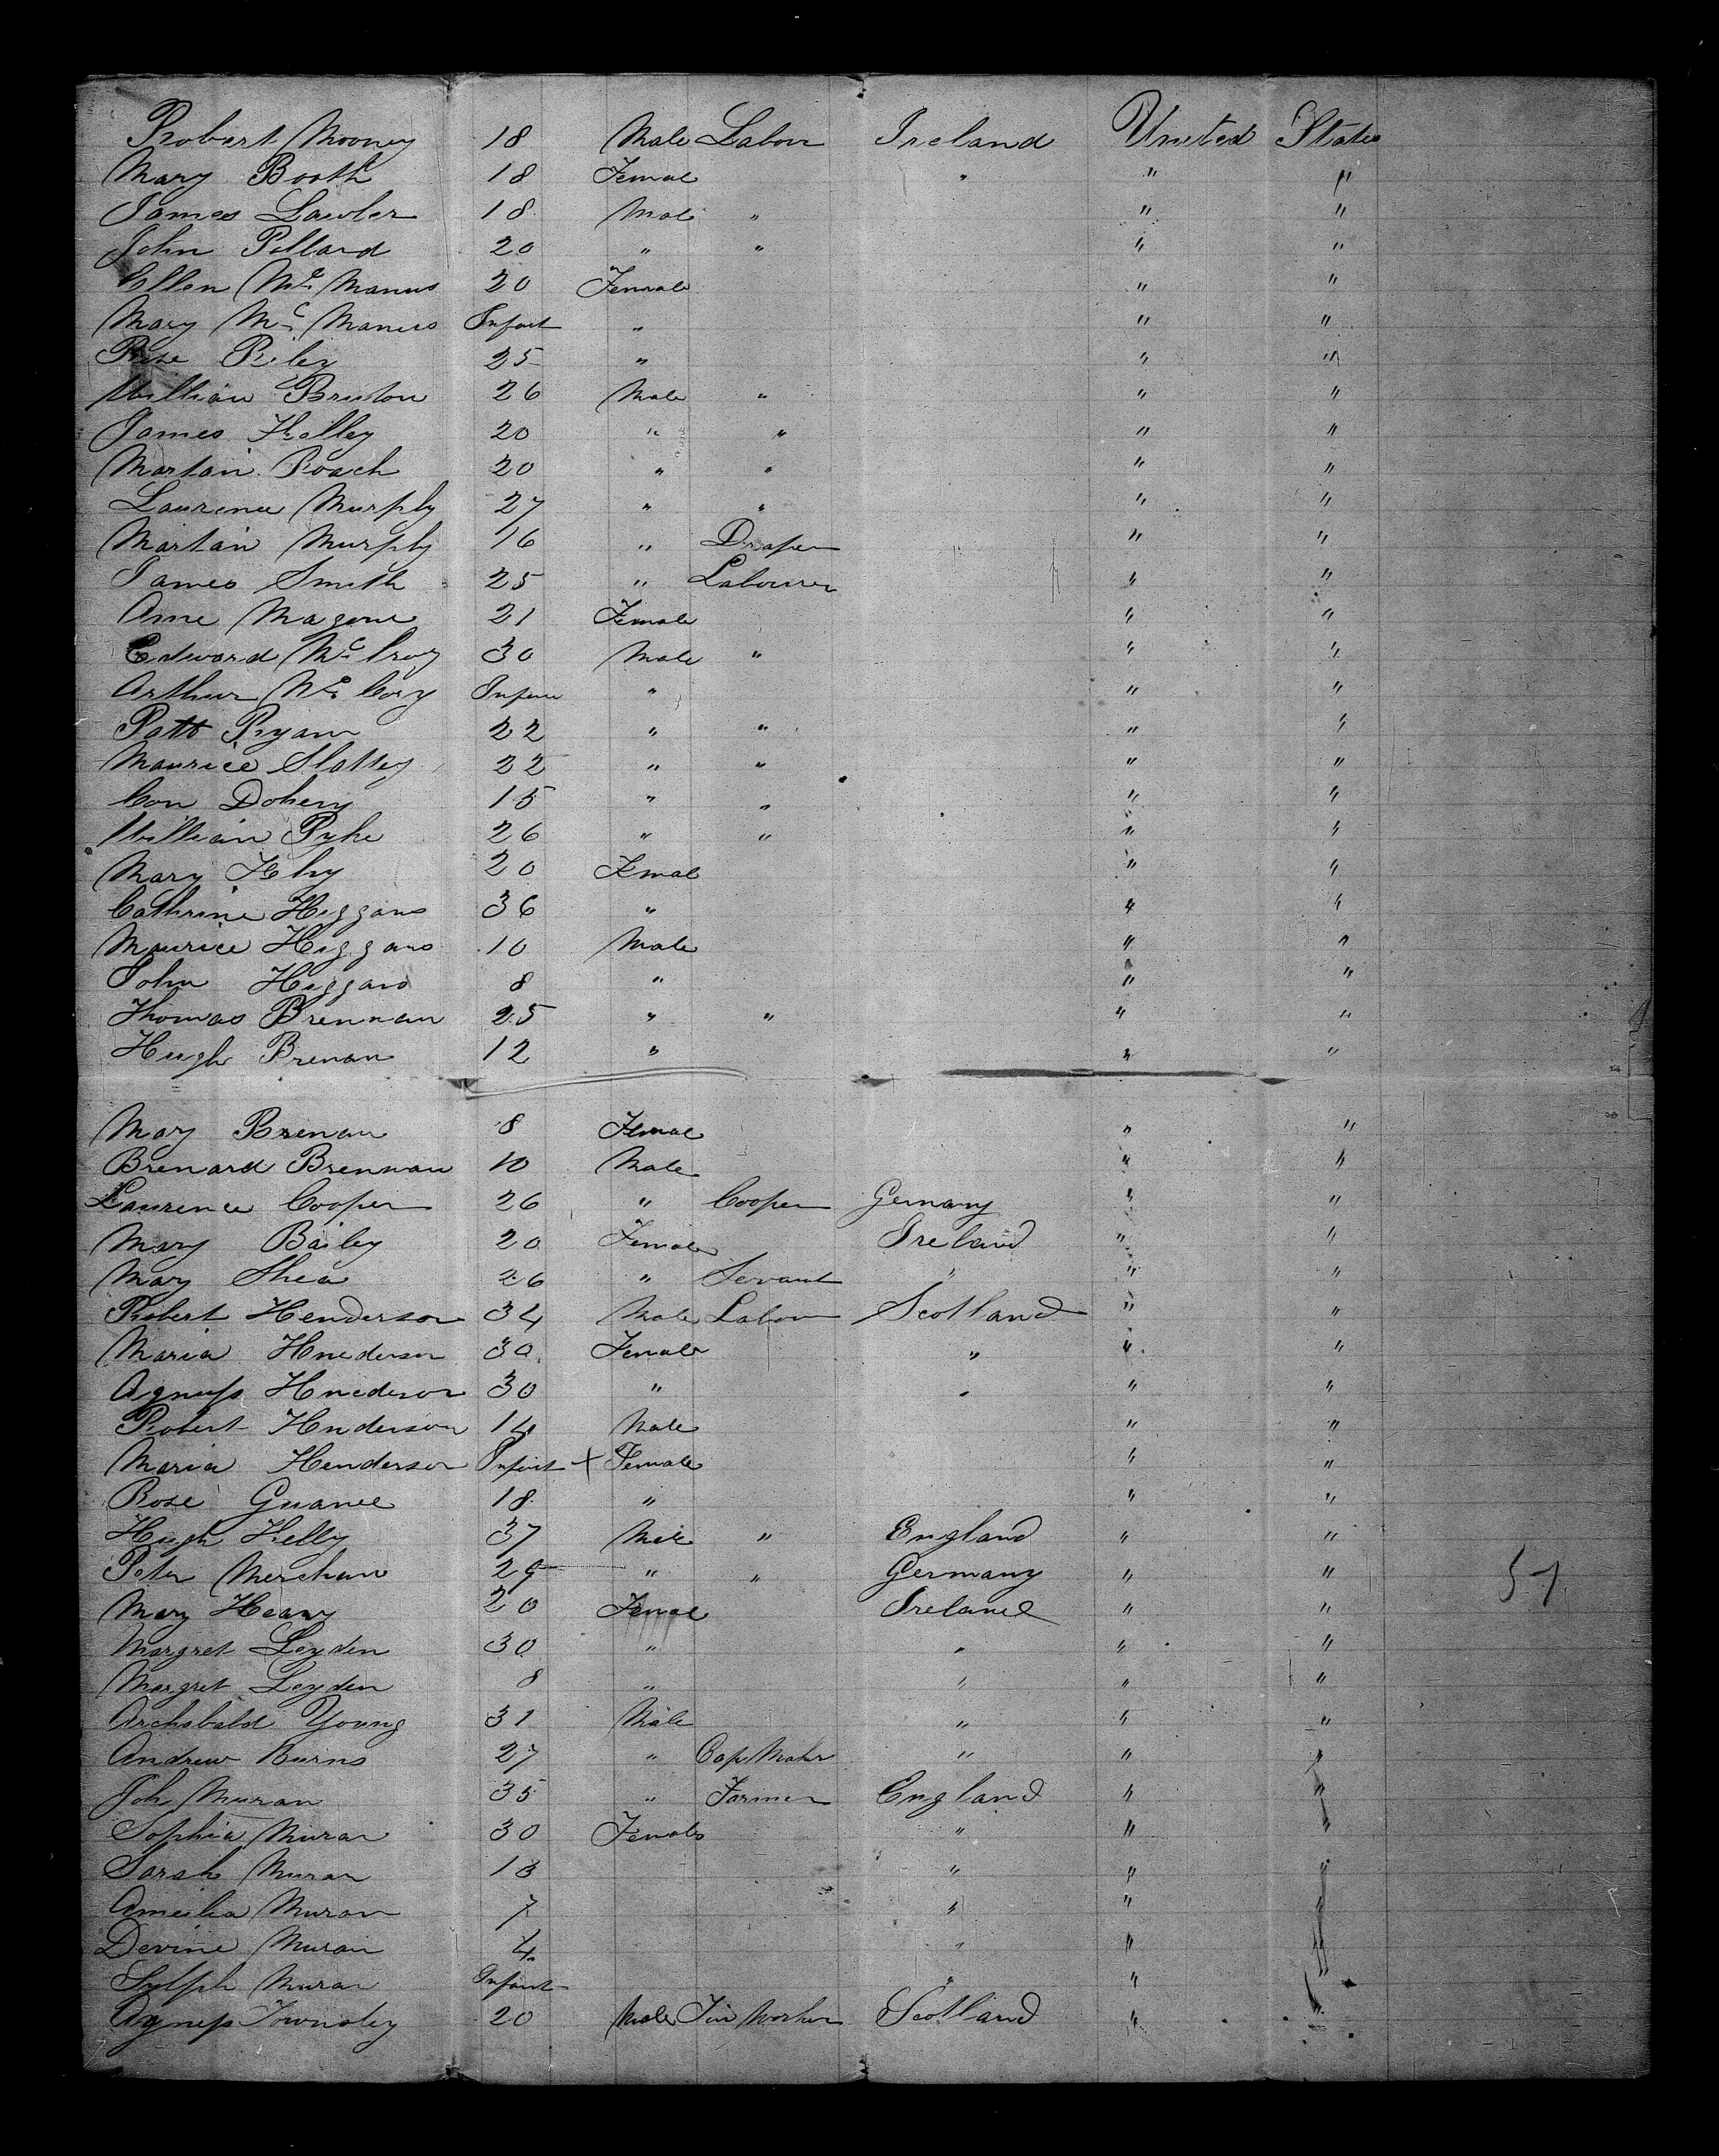 Robert Mooney 18 Male Labour Ireland United States
Mary Booth 18 Femal " " "
James Lawler 18 Male " " "
John Pollard 20 " " " "
Ellen Mc Manus 20 Female " "
Mary Mc Manus Infant " " "
Rose Riley 25 " " "
William Bruton 26 Male " " "
James Kelley 20 " " " "
Martain Roach 20 " " " "
Laurence Murphy 27 " " " "
Martain Murphy 16 " Draper " "
James Smith 25 " Labourer " "
Anne Magone 21 Female " "
Edward Mc 30 Male " " "
Arthur Mc Infant " " "
Patt Ryan 22 " " " "
Maurice Slattey 22 " " " "
Con Doheny 15 " " " "
William Pyke 26 " " " "
Mary 20 Femal " "
Cathrine Higgans 36 " " "
Maurice Higgans 10 Male " "
John Higgans 8 " " "
Thomas Brennan 25 " " " "
Hugh Brenan 12 " " "
Mary Brenan 8 Femal " "
Brenard Brennan 10 Male " "
Laurence Cooper 26 " Cooper Gemany " "
Mary Bailey 20 Female Ireland " "
Mary Shea 26 " Servant " " "
Robert Henderson 34 Male Labour Scotland " "
Maria Hnederson 30 Female " " "
Agness Hnederson 30 " " " "
Robert Henderson 14 Male " "
Maria Henderson Infant + Female " "
Rose 18 " " "
Hugh Kelly 37 Male " England " "
Peter Merchan " " Germany " "
Mary Heany 20 Femal Ireland " "
Margret Leyden 30 " " " "
Margret Leyden 8 " " " "
Archabald Young 31 Male " " "
Andrew Burns 27 " Cap Makr " " "
Joh Muran 35 " Farmer England " "
Sophia Muran 30 Female " " "
Sarah Muran 13 " " "
Ameilia Muran 7 " " "
Devine Muran 4 " " "
Muran Infant " " "
Agness Townsley 20 Male Tin Worker Scotland " "